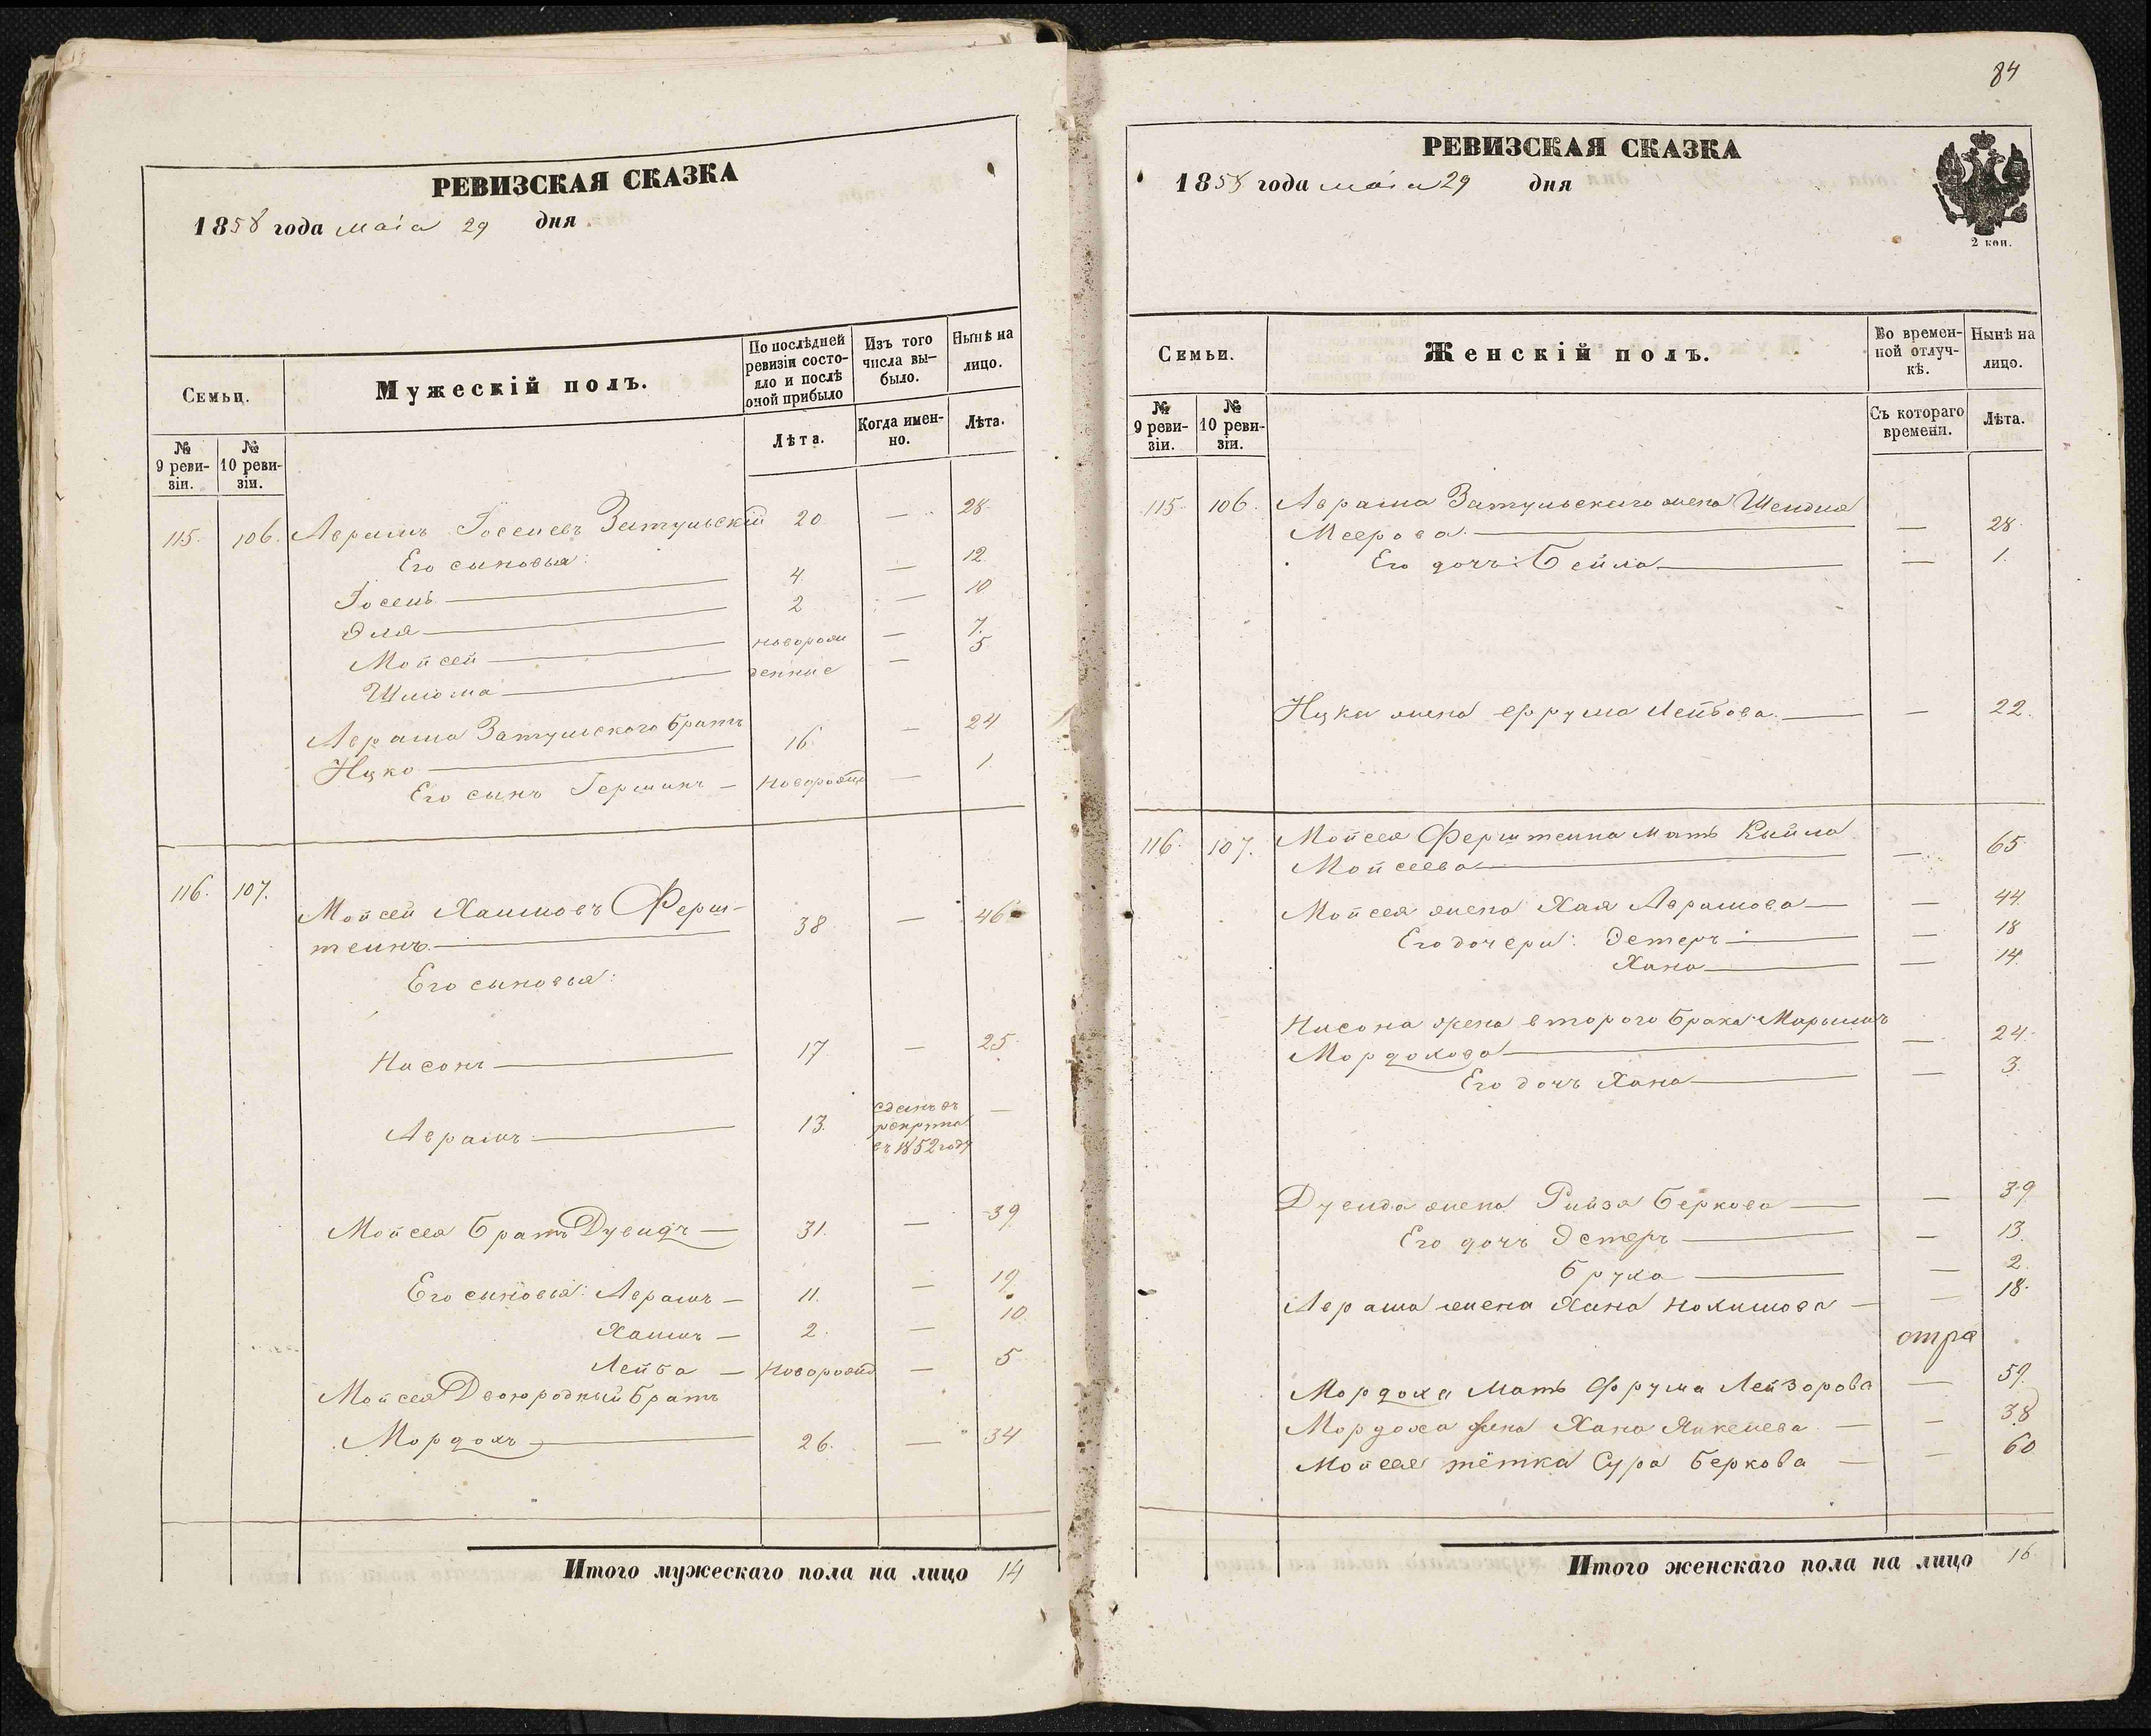 РЕВИЗСКАЯ СКАЗКА
1858 года маія 29 дня
Семьи.
Мужескій полъ.
По послѣдней ревизіи состояло и послѣ оной прибыло
Изъ того числа вы-было.
Нынѣ на лицо.
№ 9 реви-зіи.
№ 10 реви-зіи.
Лѣта.
Когда имен-но.
Лѣта.
115. 106. Аврамъ Іосеиевъ Затульскій 20 — 28
Его сыновья:
Іосеиъ 4 — 12
Эля 2 — 10
Мойсей новорож — 7.
Шлиома денные — 5
Аврама Затульского братъ
Ицко 16 — 24
Его сынъ Гершинъ — новорожд — 1
116. 107. Мойсей Хаимовъ Ферш-
теинъ 38 — 46
Его сыновья:
Нисонъ 17 — 25
Аврамъ 13. сданъ въ рекруты въ 1852 году —
Мойсея братъ Дувидъ — 31. — 39
Его сыновья: Аврамъ — 11. — 19
Хаимъ — 2. — 10
Лейба — новорожд — 5
Мойсея Двоюродный братъ
Мордохъ 26. — 34
Итого мужескаго пола на лицо 14
84
РЕВИЗСКАЯ СКАЗКА
1858 года маія 29 дня
2 коп.
Семьи.
Женскій полъ.
Во времен-ной отлуч-кѣ.
Нынѣ на лицо.
№ 9 реви-зіи.
№ 10 реви-зіи.
Съ котораго времени.
Лѣта.
115. 106. Аврама Затульскаго жена Шендля
Меерова — 28
Его дочь: Бейла — 1.
Ицки жена Фрума Лейбова — 22.
116. 107. Мойсея Ферштеина мать Кыйла
Мойсеева — 65
Мойсея жена Хая Аврамова — 44
Его дочери: Эстеръ — 18
Хана — 14
Нисона жена второго брака Марьимъ
Мордохова — 24
Его дочь Хана — 3.
Дувида жена Рийзя Беркова — 39
Его дочь Эстеръ — 13.
Бруха — 2
Аврама жена Хана Нохимова — 18.
отра
Мордоха мать Фрума Лейзорова — 59.
Мордоха жена Хана Янкелева — 38
Мойсея тётка Сура Беркова — 60
Итого женскаго пола на лицо 16